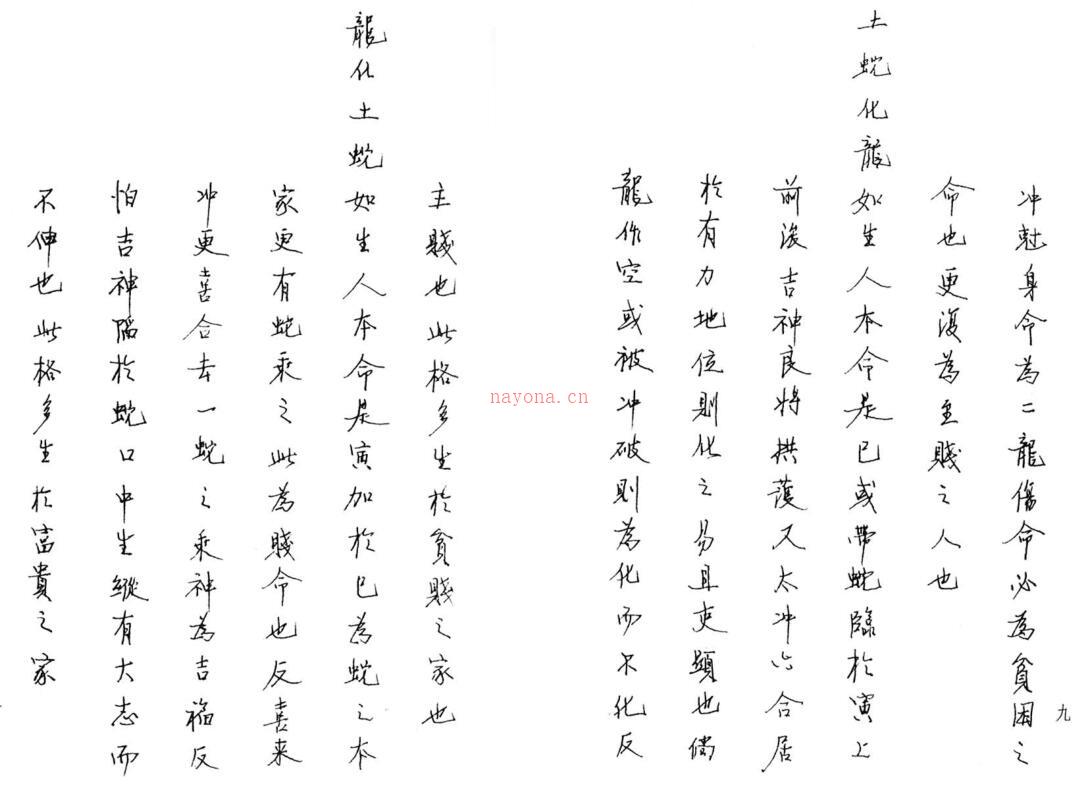 冲尅身命為二龍傷命必為貧困之
命也更復為至賤之人也
土蛇化龍如生人本命是巳或帶蛇臨於寅上
前後吉神良將拱護又太冲六合居
於有力地位則化之易且更顕也倘
龍作空或被冲破則為化而不化反
主賤也此格多生於貧賤之家也
龍化土蛇如生人本命是寅加於巳為蛇之本
家更有蛇乘之此為賤命也反喜来
冲更喜合去一蛇之乘神為吉福反
怕吉神陷於蛇口中生縱有大志而
不伸也此格多生於富貴之家
九
nayona.cn